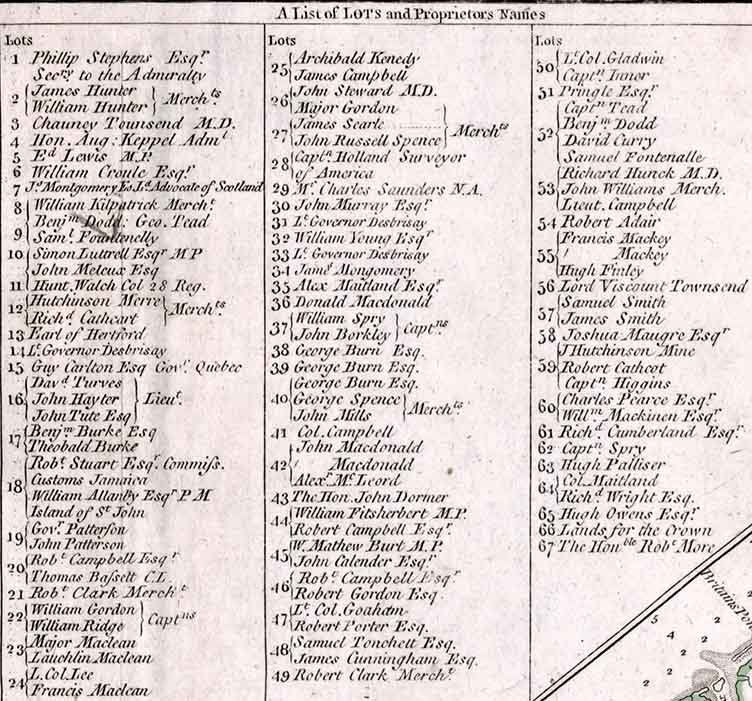 A List of LOTS and Proprietors Names
Lots
1 Phillip Stephens Esqr.
Secry. to the Admiralty
2 James Hunter
William Hunter Merchts.
3 Chauney Townsend M.D.
4 Hon. Aug: Keppel Adml.
5 Ed. Lewis M.P.
6 William Croule Esqr.
7 Js. Montgomery Es. Ld. Advocate of Scotland
8 William Kilpatrick Mercht.
Benjm. Dodd: Geo. Tead
9 Saml. Fountenelly
10 Simon Luttrell Esqr. MP
John Meleux Esq
11 Hunt. Walch Col 28 Reg.
12 Hutchinson Merre
Richd. Cathcart Merchts.
13 Earl of Hertford
14 Lt. Governor Desbrisay
15 Guy Carlton Esq Govr. Quebec
16 Davd. Turves
John Hayter Lieut.
John Tute Esq
17 Benjm. Burke Esq
Theobald Burke
18 Robt. Stuart Esqr. Commiss.
Customs Jamaica
William Allanby Esqr. P M
Island of St. John
19 Govr. Patterson
John Patterson
20 Robt. Campbell Esqr.
Thomas Bassett C.L.
21 Robt. Clark Mercht.
22 William Gordon
William Ridge Captns
23 Major Maclean
Lauchlin Maclean
24 L. Col. Lee
Francis Maclean
Lots
25 Archibald Kenedy
James Campbell
26 John Steward M.D.
Major Gordon
27 James Searle
John Russell Spence Merchts
28 Captn. Holland Surveyor
of America
29 Mr. Charles Saunders N.A.
30 John Murray Esqr.
31 Lt. Governor Desbrisay
32 William Young Esqr.
33 Lt. Governor Desbrisay
34 Jams. Mongomery
35 Alex. Maitland Esqr.
36 Donald Macdonald
37 William Spry
John Borkley Captns
38 George Burn Esq.
39 George Burn Esq.
40 George Burn Esq.
George Spence
John Mills Merchts
41 Col. Campbell
42 John Macdonald
' Macdonald
Alexr. Mc. Leord
43 The Hon. John Dormer
44 William Fitsherbert M.P.
Robert Campbell Esqr.
45 W. Mathew Burt M.P.
John Calender Esqr.
46 Robt. Campbell Esqr.
Robert Gordon Esq.
47 Lt. Col. Goaham
Robert Porter Esq.
48 Samuel Tonchett Esq.
James Cunningham Esq.
49 Robert Clark Mercht.
Lots
50 Lt. Col. Gladwin
Captn. Inner
51 Pringle Esqr.
52 Captn Tead
Benjm. Dodd
David Curry
Samuel Fontenalle
53 Richard Hunck M.D.
John Williams Merch.
Lieut. Campbell
54 Robert Adair
55 Francis Mackey
' Mackey
Hugh Finley
56 Lord Viscount Townsend
57 Samuel Smith
James Smith
58 Joshua Maugre Esqr
59 J Hutchinson Mine
Robert Cathcot
Captn. Higgins
60 Charles Pearce Esqr.
Willm. Mackinen Esqr.
61 Richd. Cumberland Esqr.
62 Captn. Spry
63 Hugh Palliser
64 Col. Maitland
Richd. Wright Esq.
65 Hugh Owens Esqr.
66 Lands for the Crown
67 The Honble Robt. More
2
5
4 2
2
2 2